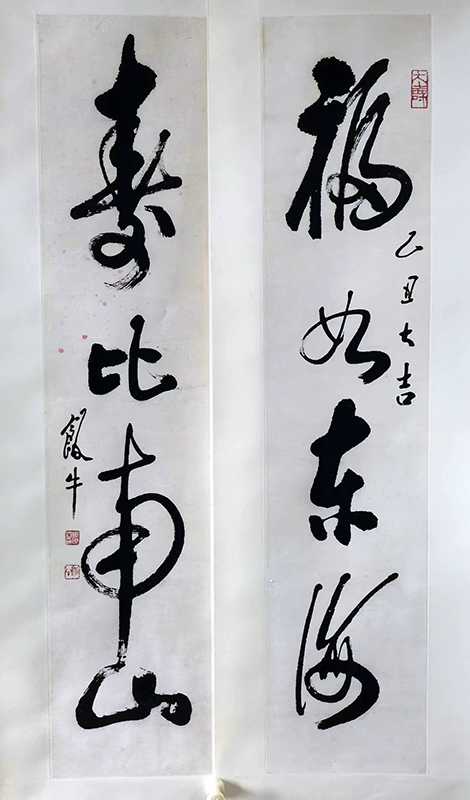 福如东海
己丑大吉
寿比南山
飯牛